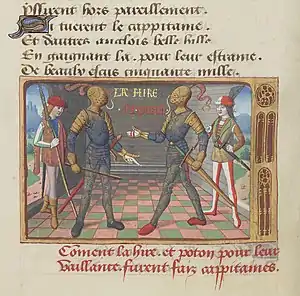 yssirent hors pareillement.
Si tuerent le cappitaine
Et dautres anglois belle bille
En gaignant la. pour leur estraine.
De beaulx escus cinquante mille.
LA HIRE
Coment lahire. et poton pour leur
vaillance. furent faiz cappitaines.